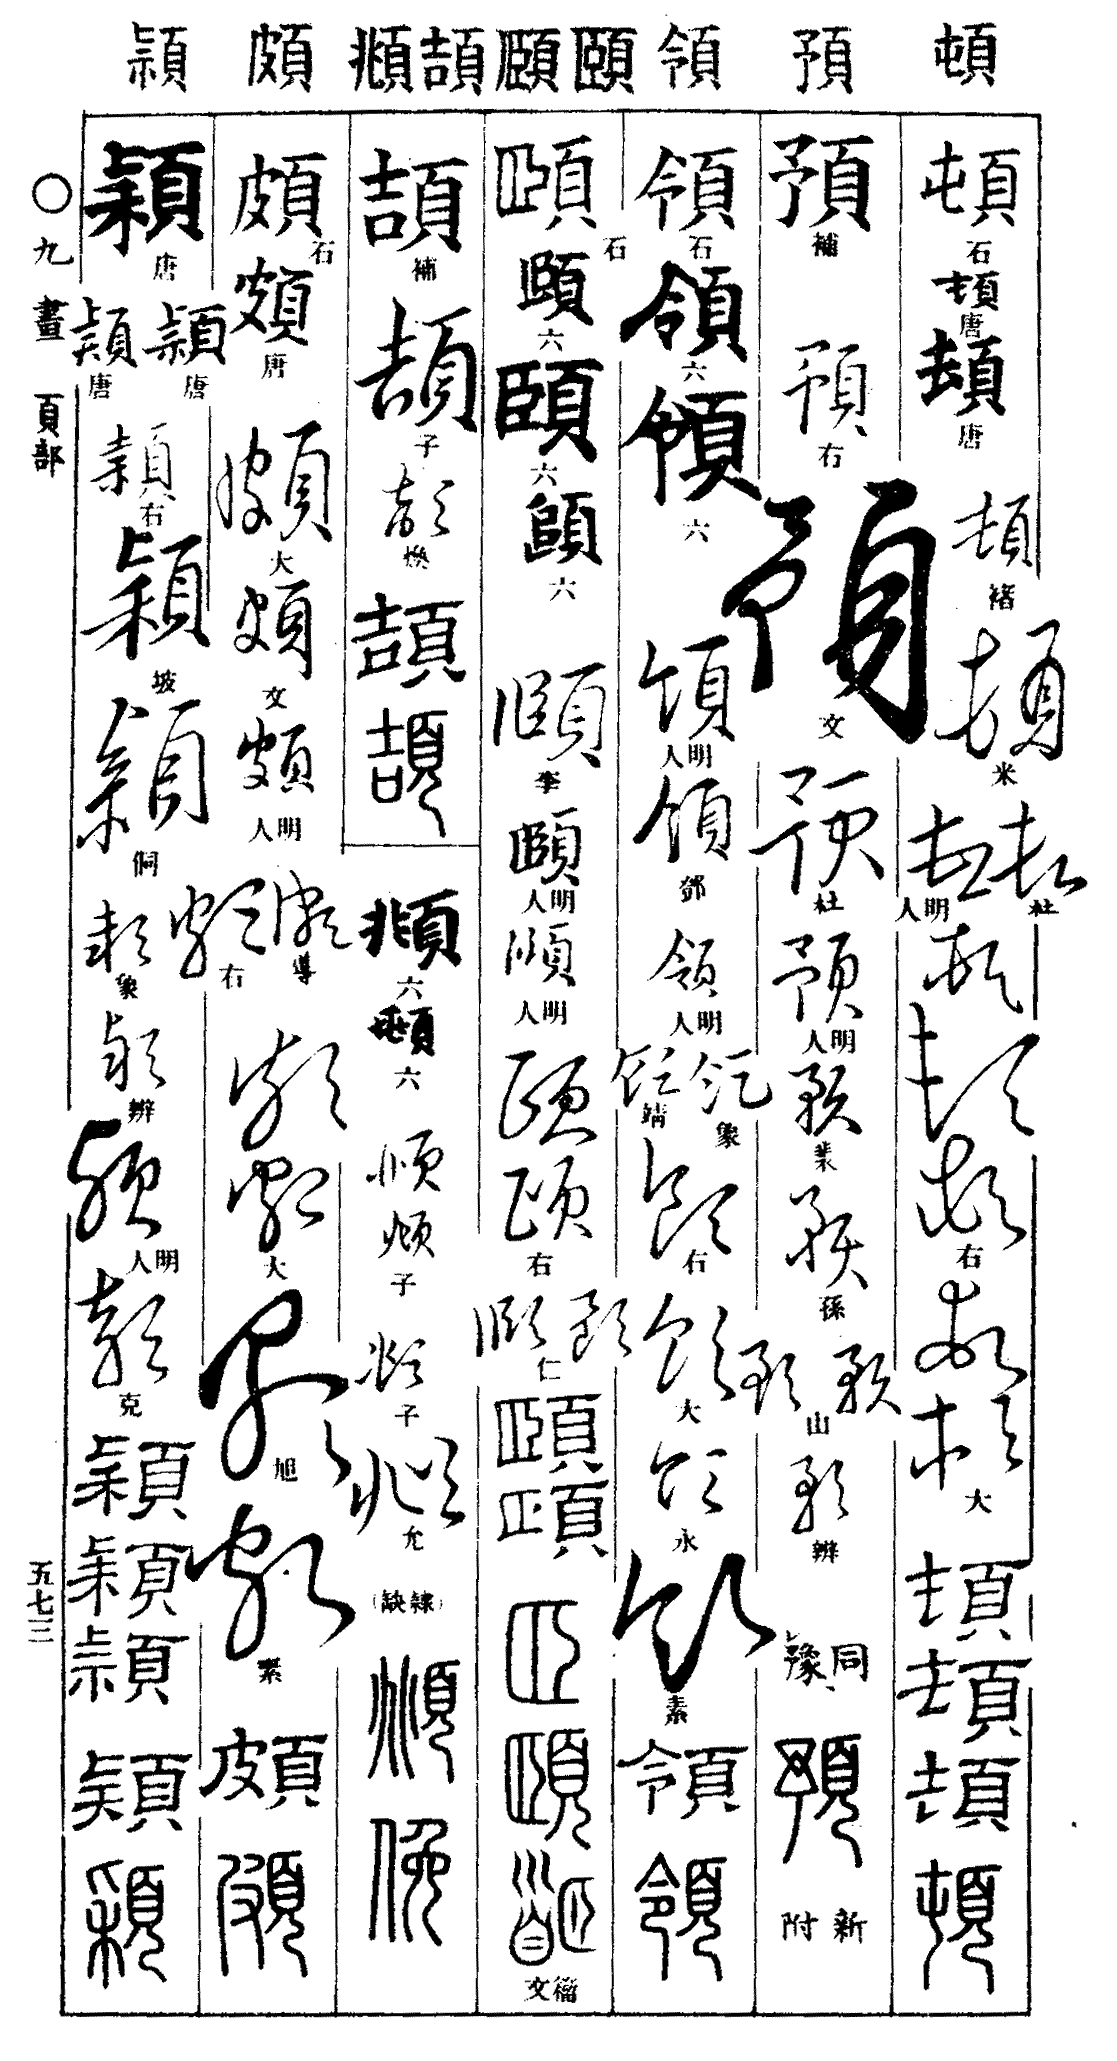 頓
預
領
頤 頥
頡 頫
頗
頴
頓 石
頓 唐
頓 唐
頓 褚
頓 米
頓 杜
頓 明人
頓
頓
頓 右
頓
頓 大
頓
頓
頓
頓
預 補
預 右
預 文
預 杜
預 明人
預
預 孫
預 預 山
預 辨
同 豫
預
新附
領 石
領 六
領 六
領 明人
領 鄧
領 明人
領 象
領 靖
領 右
領 大
領 永
領 素
領
領
頤 石
頤 六
頤 六
頤 六
頤 李
頤 明人
頤 明人
頤
頤 右
頤 頤 仁
頤
頤
𦣞
頤
籀文
頡 補
頡 子
頡 煥
頡
頡
頫 六
頫 六
頫
頫 子
頫 子
頫 允
(隸缺)
頫
俛
頗 石
頗 唐
頗 大
頗 文
頗 明人
頗 導
頗 右
頗
頗 大
頗 旭
頗 素
頗
頗
頴 唐
頴 唐
頴 唐
頴 右
頴 坡
頴 侗
頴 象
頴 辨
頴 明人
頴 克
頴
頴
頴
頴
頴
〇九畫 頁部
五七三